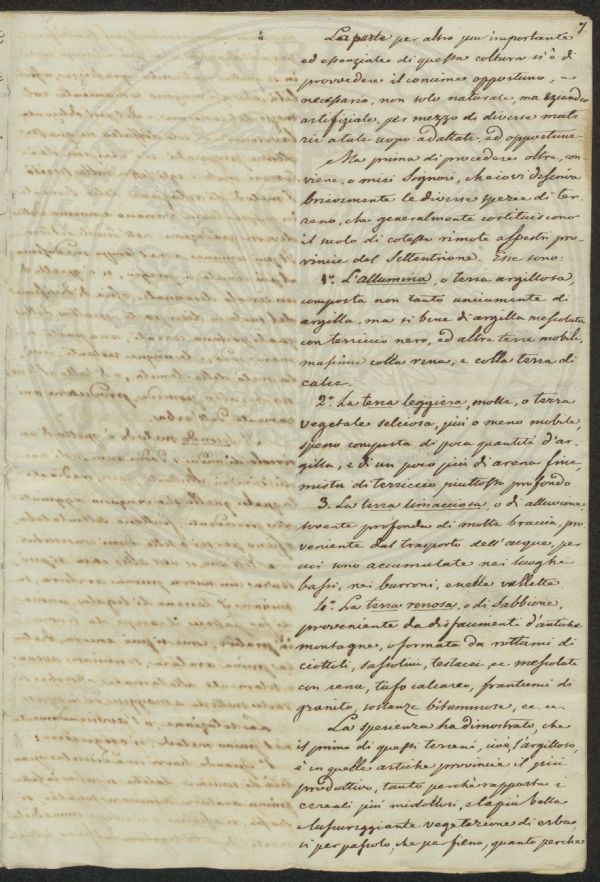 7
La parte per altro piu importante
ed essenziale di questa coltura si è di
provvedere il concime opportuno, e
necessario, non solo naturale, ma eziandio
artifiziale, per mezzo di diverse mate
rie a tale uopo adattate, ed opportune
Ma prima di procedere oltre, con
viene, o miei Signori, che io vi descriva
brevemente le diverse spezie di ter
reno, che generalmente costituiscono
il suolo di coteste rimote alpestri pro
vincie del Settentrione. Esse sono:
1º. L'allumina, o terra argillosa,
composta non tanto unicamente di
argilla, ma si bene di argilla mescolata
con terriccio nero, ed altre terre mobili,
massime colla rena, e colla terra di
calce.
2º. La terra leggiera, molle, o terra
vegetale selciosa, più o meno mobile,
spesso composta di poca quantità d'ar
gilla, e di un poco più di arena fine
mista di terriccio piuttosto profondo
3. La terra limacciosa, o di alluvione
sovente profonda di molte braccia, pro
veniente dal trasporto dell'acque, per
cui sono accumulate nei luoghi
bassi, nei burroni, e nelle vallette.
4º. La terra renosa, o di Sabbione,
proveniente da disfacimenti d'antiche
montagne, o formata da rottumi di
ciottoli, sassolini, testacei, ec. mescolati
con rena, tufo calcareo, frantumi di
granito, sostanze bituminose, ec. ec.
La sperienza ha dimostrato, che
il primo di questi terreni, cioè, l'argilloso,
è in quelle artiche provincie il più
produttivo, tanto perchè rapporta i
cereali più midollosi, e la più bella
e lussureggiante vegetazione di erba
si per pascolo, che per fieno, quanto perche